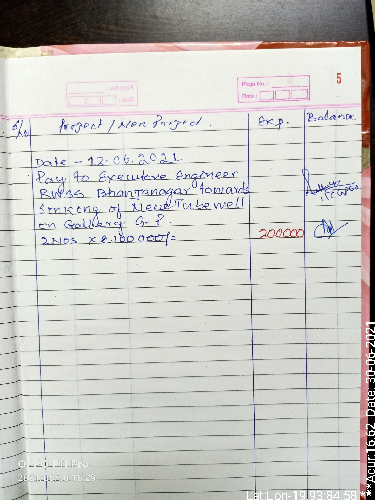 5
Page No.
Date :
Sl/No
Project / Non Project.
Exp.
Balance
Date - 12.06.2021
Pay to Executive Engineer
RWSS Bhanjanagar towards
Sinking of New Tubewell
on Gallery G.P.
2 Nos x 100 000/=
200000
2021 18:29
Lat Lon-19.93:84.58
***Accur 16.62 Date: 30-06-2021